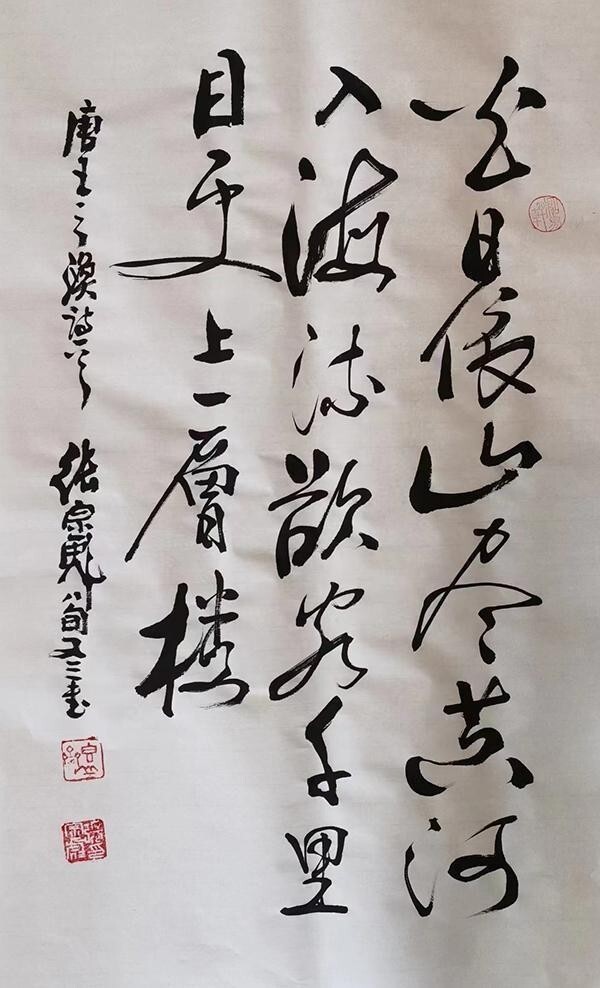 白日依山尽黄河
入海流欲穷千里
目更上一層楼
唐王之涣诗
张宗 八旬又三书